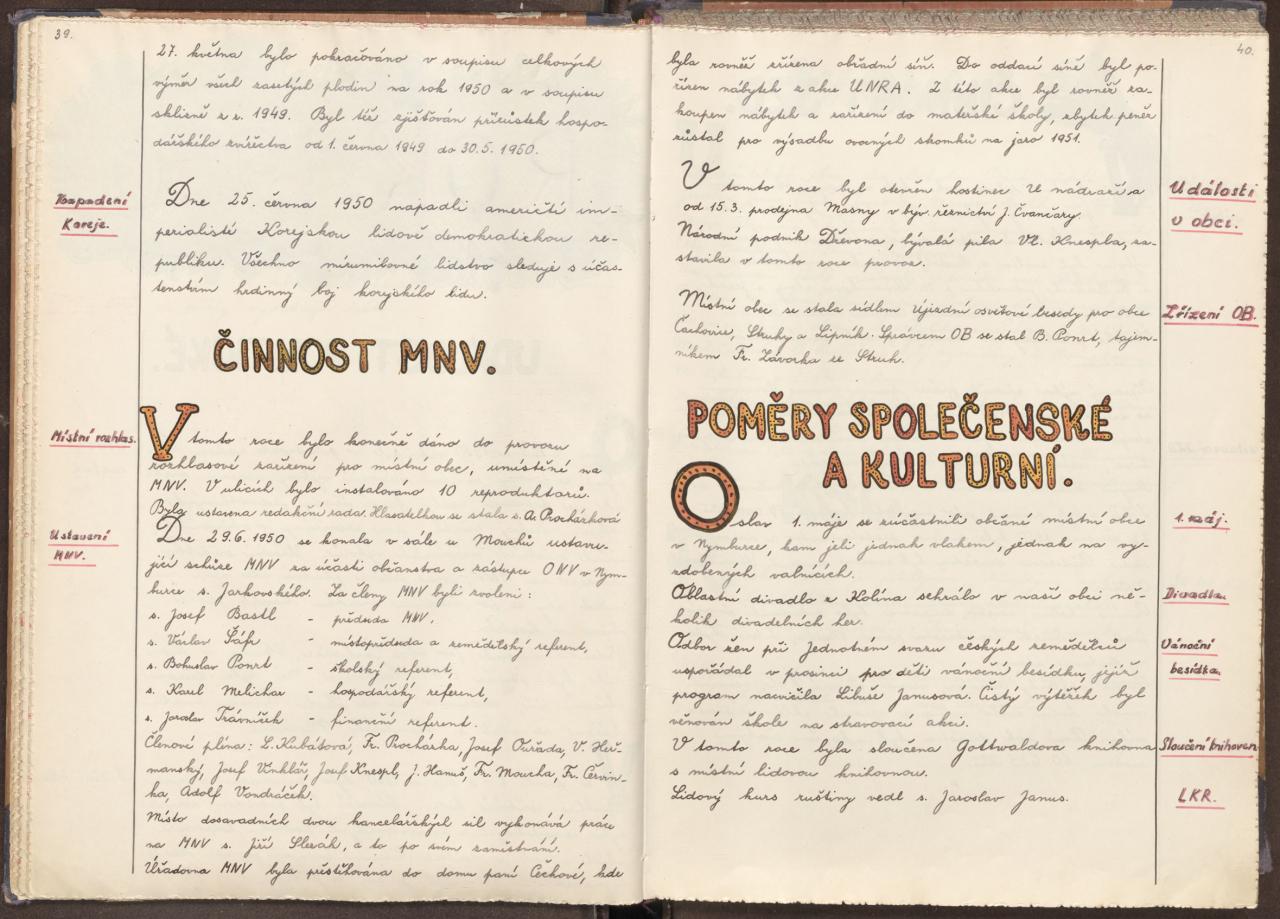 39.
27. května bylo pokračováno v soupisu celkových
výměr všech zasetých plodin na rok 1950 a v soupisu
sklizně z r. 1949. Byl též zjišťován přírůstek hospo-
dářského zvířectva od 1. června 1949 do 30.5. 1950.
Napadení
Koreje.
Dne 25. června 1950 napadli američtí im-
perialisté Korejskou lidově demokratickou re-
publiku. Všechno mírumilovné lidstvo sleduje s účas-
tenstvím hrdinný boj korejského lidu.
ČINNOST MNV.
Místní rozhlas.
V tomto roce bylo konečně dáno do provozu
rozhlasové zařízení pro místní obec, umístění na
MNV. V ulicích bylo instalováno 10 reproduktorů.
Byla ustavena redakční rada. Hlasatelkou se stala s. A. Procházková
Ustavení
MNV.
Dne 29.6. 1950 se konala v sále u Mouchů ustavu-
jící schůze MNV za účasti občanstva a zástupce ONV v Nym-
burce s. Jarkovského. Za členy MNV byli zvoleni:
s. Josef Bastl - předseda MNV,
s. Václav Šáfr - místopředseda a zemědělský referent,
s. Bohuslav Ponrt - školský referent,
s. Karel Melichar - hospodářský referent,
s. Jaroslav Trávníček - finanční referent.
Členové pléna: L. Kubátová, Fr. Procházka, Josef Ouřada, V. Heř-
manský, Josef Vinklář, Josef Knespl, J. Hanuš, Fr. Moucha, Fr. Červin-
ka, Adolf Vondráček.
Místo dosavadních dvou kancelářských sil vykonává práce
na MNV s. Jiří Slezák, a to po svém zaměstnání.
Úřadovna MNV byla přestěhována do domu paní Čechové, kde
40.
byla rovněž zřízena obřadní síň. Do oddací síně byl po-
řízen nábytek z akce UNRA. Z této akce byl rovněž za-
koupen nábytek a zařízení do mateřské školy, zbytek peněz
zůstal pro výsadbu ovocných stromků na jaro 1951.
Události
v obci.
V tomto roce byl otevřen hostinec U nádraží a
od 15.3. prodejna Masny v býv. řeznictví J. Čvančary.
Národní podnik Dřevona, bývalá pila Vl. Knespla, za-
stavila v tomto roce provoz.
Zřízení OB.
Místní obec se stala sídlem Újezdní osvětové besedy pro obce
Čachovice, Struhy a Lipník. Správcem OB se stal B. Ponrt, tajem-
níkem Fr. Závorka ze Struh.
POMĚRY SPOLEČENSKÉ
A KULTURNÍ.
1. máj.
Oslav 1. máje se zúčastnili občané místní obce
v Nymburce, kam jeli jednak vlakem, jednak na vy-
zdobených valnících.
Divadla.
Oblastní divadlo z Kolína sehrálo v naší obci ně-
kolik divadelních her.
Vánoční
besídka.
Odbor žen při Jednotném svazu českých zemědělců
uspořádal v prosinci pro děti vánoční besídku, jejíž
program nacvičila Libuše Janusová. Čistý výtěžek byl
věnován škole na stravovací akci.
Sloučení knihoven
V tomto roce byla sloučena Gottwaldova knihovna
s místní lidovou knihovnou.
LKR.
Lidový kurs ruštiny vedl s. Jaroslav Janus.